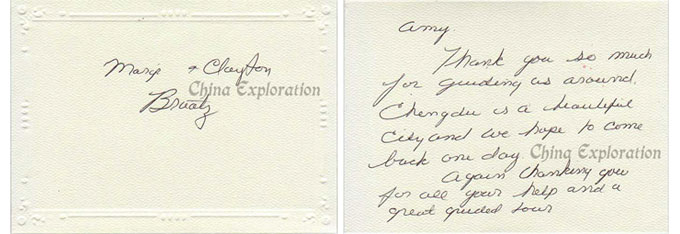 Marge + Clayton
China Exploration
Braatz
Amy,
Thank you so much
for guiding us around.
Chengdu is a beautiful
City and we hope to come
back one day China Exploration
Again thanking you
for all your help and a
great guided tour